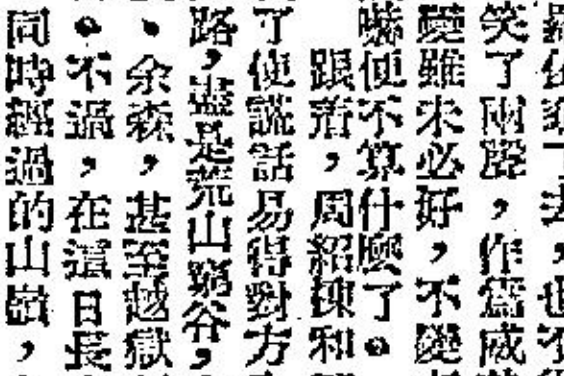 去，也不
笑了兩聲，作當威
變雖未必好，不變
嚇便不算什麼了。
跟着，周紹棟和
了使謊話易得對方
路，盡是荒山窮谷，
、余森，甚至越獄
。不過，在這日長
同時經過的山嶺，